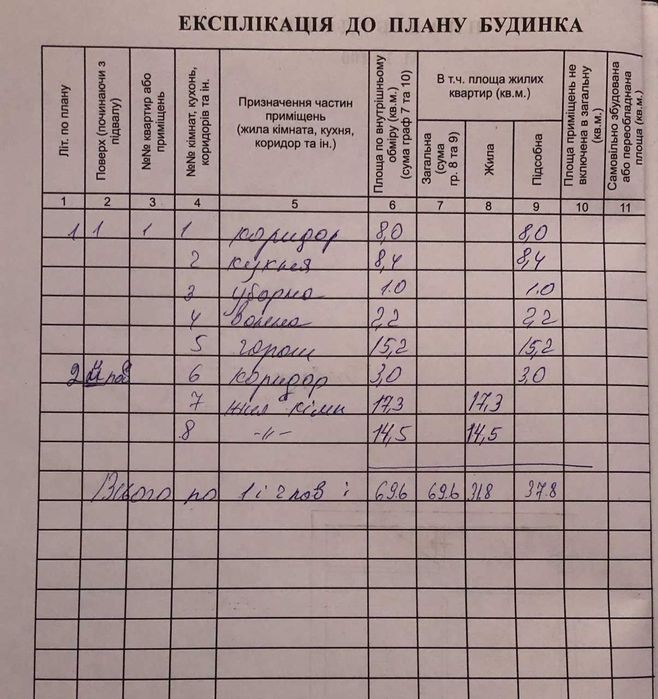 ЕКСПЛІКАЦІЯ ДО ПЛАНУ БУДИНКА
Літ. по плану
Поверх (починаючи з підвалу)
№№ квартир або приміщень
№№ кімнат, кухонь, коридорів та ін.
Призначення частин приміщень (жила кімната, кухня, коридор та ін.)
Площа по внутрішньому обміру (кв.м.) (сума граф 7 та 10)
В т.ч. площа жилих квартир (кв.м.)
Загальна (сума гр. 8 та 9)
Жила
Підсобна
Площа приміщень не включена в загальну (кв.м.)
Самовільно збудована або переобладнана площа (кв.м)
1 2 3 4 5 6 7 8 9 10 11
1 1 1 1 коридор 8,0 8,0
2 кухня 8,4 8,4
3 уборна 1.0 1.0
4 ванна 2,2 2,2
5 15,2 15,2
2 пов 6 коридор 3,0 3,0
7 жил кімн 17,3 17,3
8 -"- 14,5 14,5
Всього по 1 і 2 пов : 69.6 69.6 31.8 37.8